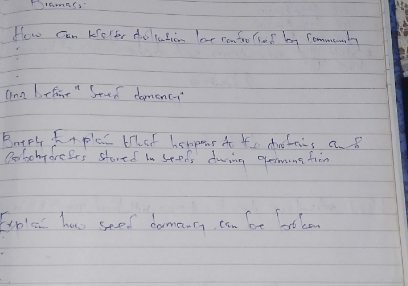 How can water pollution be controlled by community
define "seed domancy"
Briefly Explain what happens to the proteins and
Carbohydrates stored in seeds during germination
Explain how seed domancy can be broken